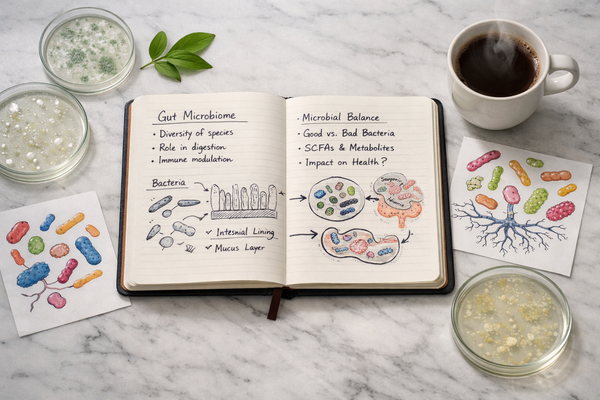 Gut Microbiome
• Diversity of species
• Role in digestion
• Immune modulation
Bacteria
✓ Intesnial Lining
✓ Mucus Layer
• Microbial Balance
• Good vs. Bad Bacteria
• SCFAs & Metabolites
• Impact on Health?